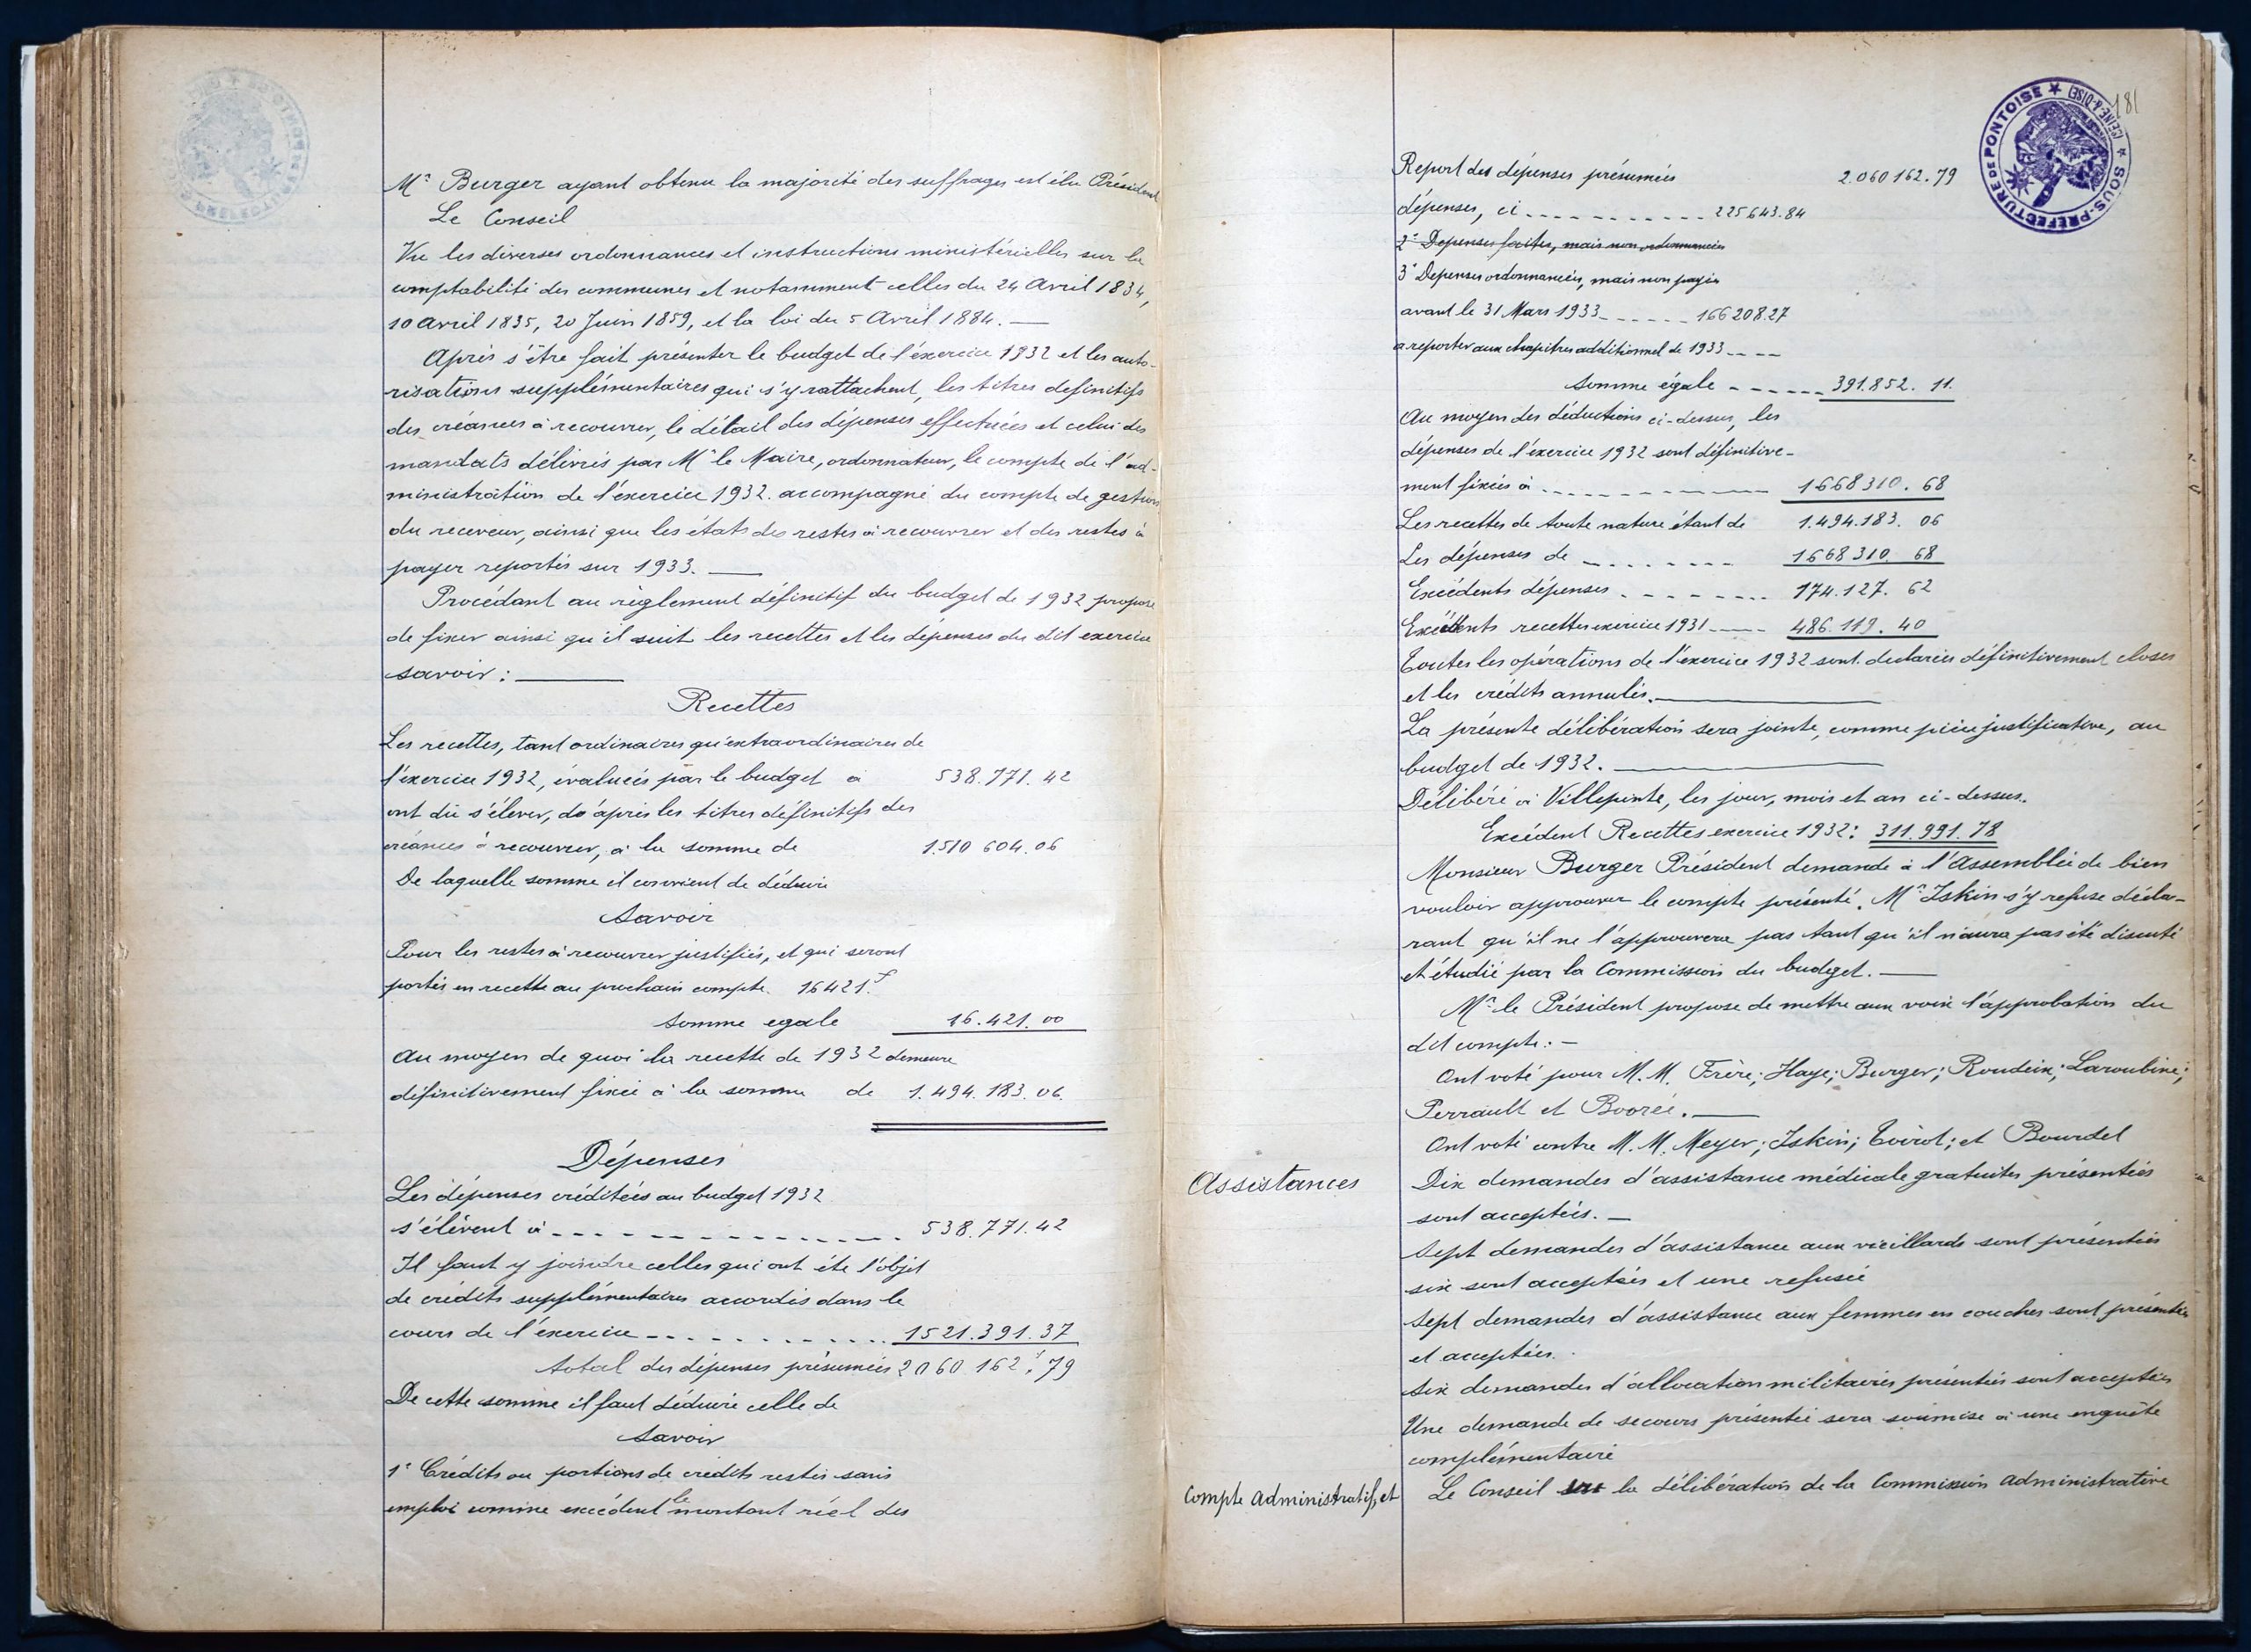 Mr Burger ayant obtenu la majorité des suffrages est élu Président
Le Conseil
Vu les diverses ordonnances et instructions ministérielles sur la
comptabilité des communes et notamment celles du 24 Avril 1834,
10 Avril 1835, 20 Juin 1859, et la loi du 5 Avril 1884. —
Après s'être fait présenter le budget de l'exercice 1932 et les auto-
risations supplémentaires qui s'y rattachent, les titres definitifs
des créances à recouvrer, le détail des dépenses effectuées et celui des
mandats délivrés par Mr le Maire, ordonnateur, le compte de l'ad-
ministration de l'exercice 1932. accompagné du compte de gestion
du receveur, ainsi que les états des restes à recouvrer et des restes à
payer reportés sur 1933. —
Procédant au règlement définitif du budget de 1932 propose
de fixer ainsi qu'il suit les recettes et les dépenses du dit exercice
savoir : —
Recettes
Les recettes, tant ordinaires qu'extraordinaires de
l'exercice 1932, évaluées par le budget à 538.771.42
ont dû s'élever, d'après les titres définitifs des
créances à recouvrer, à la somme de 1.510 604.06
De laquelle somme il convient de déduire
Savoir
Pour les restes à recouvrer justifiés, et qui seront
portés en recette au prochain compte. 16421.f
Somme egale 16.421.00
Au moyen de quoi la recette de 1932 demeure
définitivement fixée à la somme de 1.494.183.06.
Dépenses
Les dépenses créditées au budget 1932
s'élèvent à - - - - - - - - 538.771.42
Il faut y joindre celles qui ont été l'objet
de crédits supplémentaires accordés dans le
cours de l'exercice - - - - - - - - 1521.391.37
total des dépenses présumées 2060.162f.79
De cette somme il faut déduire celle de
Savoir
1° Crédits ou portions de crédits restés sans
emploi comme excédent le montant réel des
181
SOUS-PRÉFECTURE DE PONTOISE ★ (SEINE-&-OISE) ★
Report des dépenses présumées 2.060162.79
dépenses, ci - - - - - - - - 225643.84
2° Depenses faites, mais non ordonnancées
3° Depenses ordonnancées, mais non payées
avant le 31 Mars 1933 - - - - - 166208.27
a reporter aux chapitres additionnel de 1933 - - -
Somme égale - - - - - - 391.852. 11.
Au moyen des déductions ci-dessus, les
dépenses de l'exercice 1932 sont définitive-
ment fixées à - - - - - - - - 1668310. 68
Les recettes de toute nature étant de 1.494.183. 06
Les dépenses de - - - - - - - 1668310. 68
Excédents dépenses - - - - - - - 174.127. 62
Excédents recettes exercice 1931 - - - 486.119. 40
Toutes les opérations de l'exercice 1932 sont declarées définitivement closes
et les crédits annulés. —
La présente délibération sera jointe, comme pièce justificative, au
budget de 1932. —
Délibéré à Villepinte, les jour, mois et an ci-dessus.
Excédent Recettes exercice 1932: 311.991.78
Monsieur Burger Président demande à l'Assemblée de bien
vouloir approuver le compte présenté. Mr Iskin s'y refuse décla-
rant qu'il ne l'approuvera pas tant qu'il n'aura pas été discuté
et étudié par la Commission du budget. —
Mr le Président propose de mettre aux voix l'approbation du
dit compte. —
Ont voté pour M.M. Frère; Haye; Burger; Roudeix; Laroubine;
Perrault et Boorée. —
Ont voté contre M.M. Meyer; Iskin; Toirot; et Bourdel
Assistances
Dix demandes d'assistance médicale gratuites présentées
sont acceptées. —
Sept demandes d'assistance aux vieillards sont présentées
six sont acceptées et une refusée
Sept demandes d'assistance aux femmes en couches sont présentées
et acceptées.
Six demandes d'allocation militaires présentées sont acceptées
Une demande de secours présentée sera soumise à une enquête
complémentaire
Compte Administratif, et
Le Conseil vu la délibération de la Commission Administrative